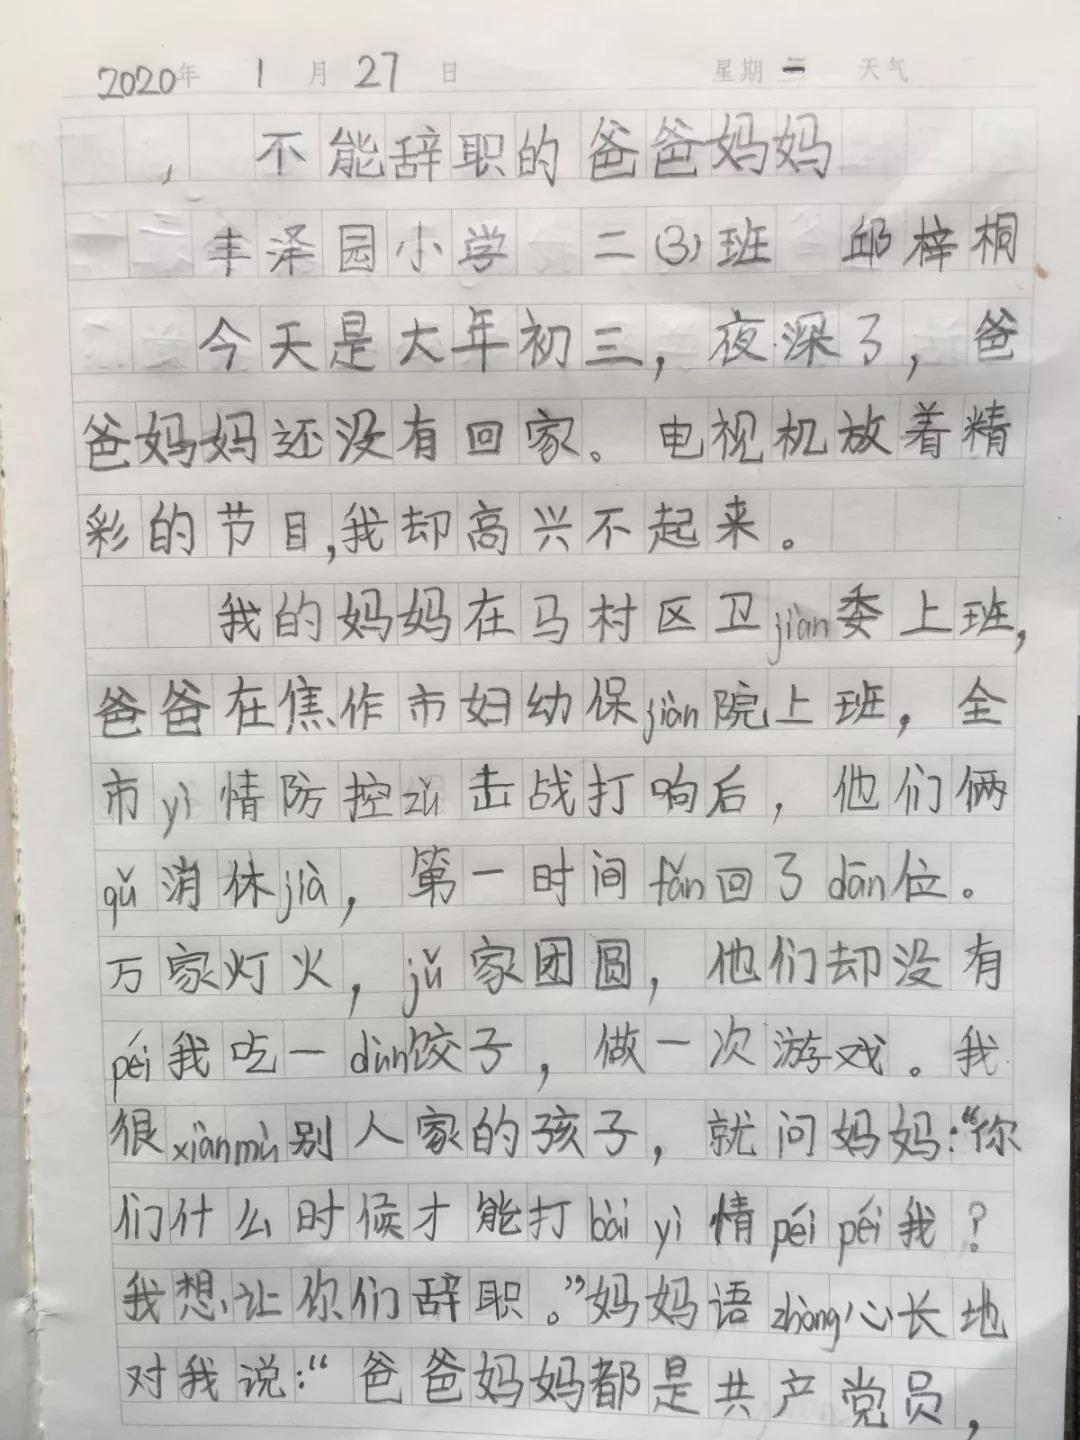 2020年 1月27日 星期二 天气
不能辞职的爸爸妈妈
丰泽园小学 二(3)班 邱梓桐
今天是大年初三，夜深了，爸
爸妈妈还没有回家。电视机放着精
彩的节目,我却高兴不起来。
我的妈妈在马村区卫jiàn委上班,
爸爸在焦作市妇幼保jiàn院上班，全
市yì情防控zǔ击战打响后，他们俩
qǔ消休jià，第一时间fǎn回了dān位。
万家灯火，jǔ家团圆，他们却没有
péi我吃一dùn饺子，做一次游戏。我
很xiànmù别人家的孩子，就问妈妈:“你
们什么时候才能打bài yì情péi péi我？
我想让你们辞职。”妈妈语zhòng心长地
对我说:“爸爸妈妈都是共产党员，